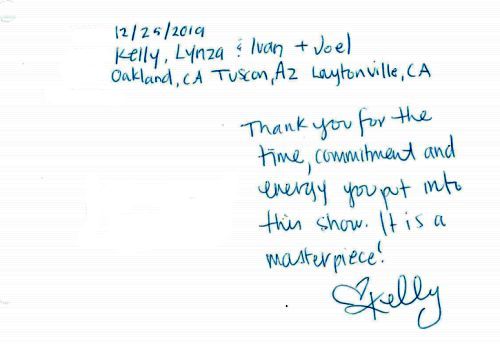 12/25/2019
Kelly, Lynza & Ivan + Joel
Oakland, CA Tuscon, AZ Laytonville, CA
Thank you for the
time, commitment and
energy you put into
this show. It is a
masterpiece!
♡Kelly